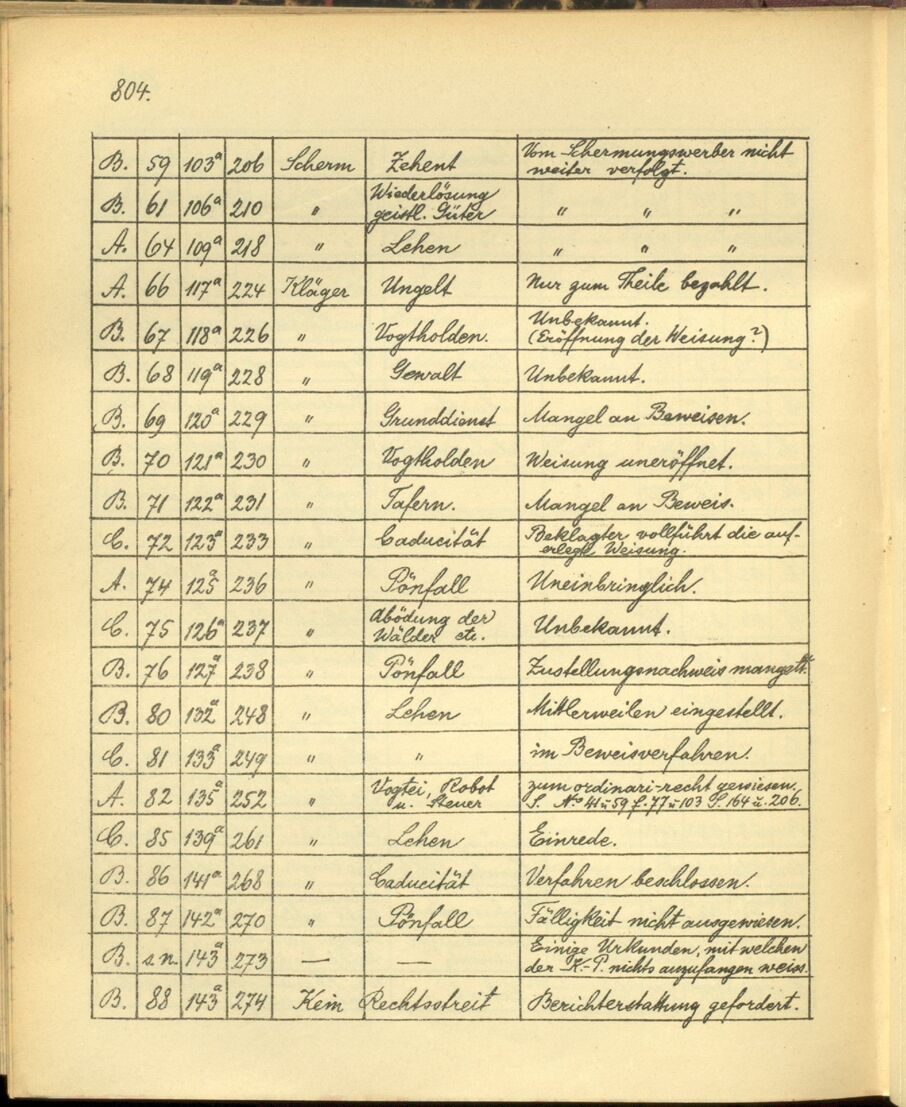 804.
B. 59 103a 206 Scherm Zehent Vom Schermungswerber nicht
weiter verfolgt.
B. 61 106a 210 " Wiederlösung
geistl. Güter " " "
A. 64 109a 218 " Lehen " " "
A. 66 117a 224 Kläger Ungelt Nur zum Theile bezahlt.
B. 67 118a 226 " Vogtholden. Unbekannt.
(Eröffnung der Weisung?)
B. 68 119a 228 " Gewalt Unbekannt.
B. 69 120a 229 " Grunddienst Mangel an Beweisen.
B. 70 121a 230 " Vogtholden Weisung uneröffnet.
B. 71 122a 231 " Tafern. Mangel an Beweis.
C. 72 123a 233 " Caducität Beklagter vollführt die auf-
erlegte Weisung.
A. 74 125a 236 " Pönfall Uneinbringlich.
C. 75 126a 237 " Abödung der
Wälder etc. Unbekannt.
B. 76 127a 238 " Pönfall Zustellungsnachweis mangelt.
B. 80 132a 248 " Lehen Mittlerweilen eingestellt.
C. 81 133a 249 " " im Beweisverfahren.
A. 82 135a 252 " Vogtei, Robot
u. Steuer zum ordinari-recht gewiesen.
S. No 41 u 59 f. 77 u 103 S. 164 u. 206.
C. 85 139a 261 " Lehen Einrede.
B. 86 141a 268 " Caducität Verfahren beschlossen.
B. 87 142a 270 " Pönfall Fälligkeit nicht ausgewiesen.
B. s.n. 143a 273 — — Einige Urkunden, mit welchen
der K.-P. nichts anzufangen weiss.
B. 88 143a 274 Kein Rechtsstreit Berichterstattung gefordert.